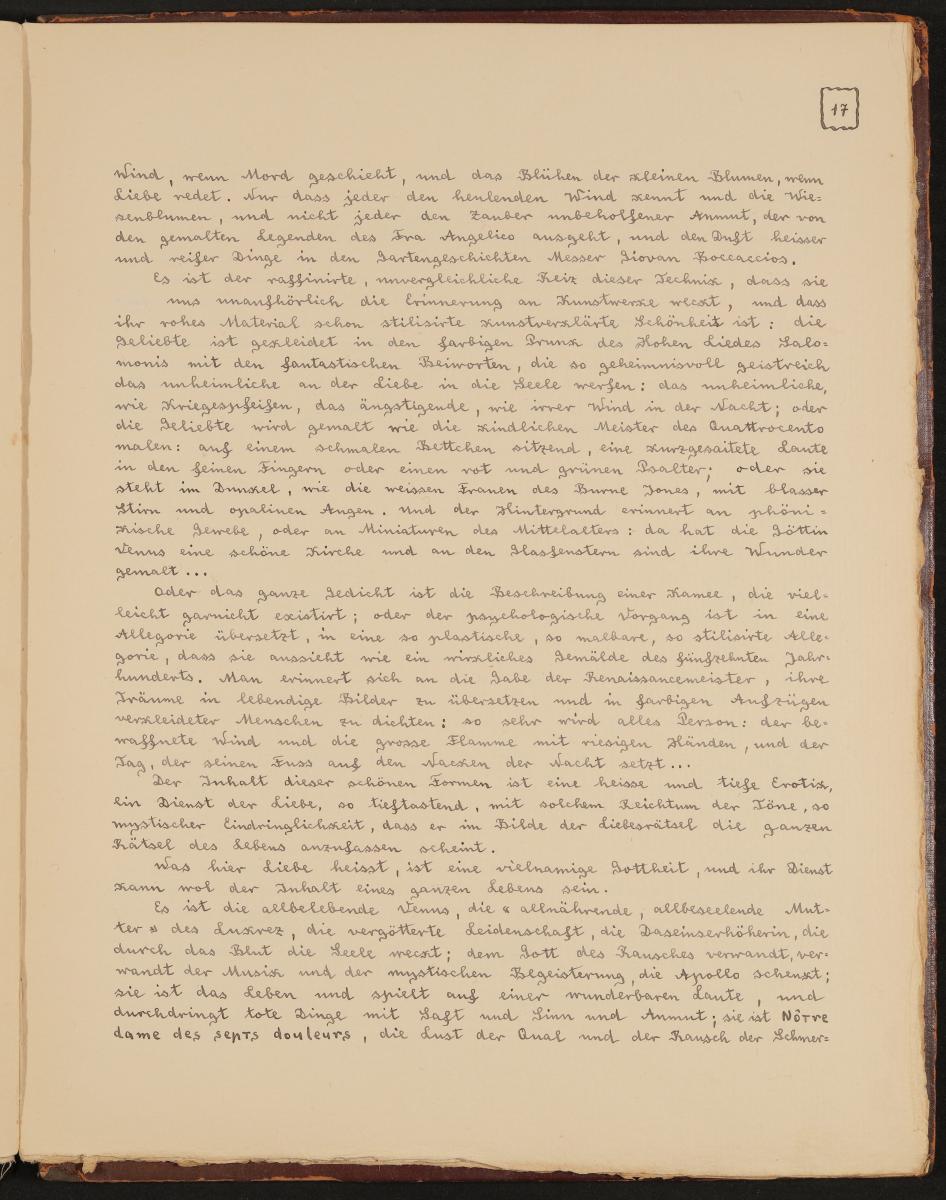 17
Wind, wenn Mord geschieht, und das Blühen der kleinen Blumen, wenn
Liebe redet. Nur dass jeder den heulenden Wind kennt und die Wie=
senblumen, und nicht jeder den Zauber unbeholfener Anmut, der von
den gemalten Legenden des Fra Angelico ausgeht, und den Duft heisser
und reifer Dinge in den Gartengeschichten Messer Giovan Boccaccios.
Es ist der raffinirte, unvergleichliche Reiz dieser Technik, dass sie
uns unaufhörlich die Erinnerung an Kunstwerke weckt, und dass
ihr rohes Material schon stilisirte kunstverklärte Schönheit ist: die
Geliebte ist gekleidet in den farbigen Prunk des Hohen Liedes Salo=
monis mit den fantastischen Beiworten, die so geheimnisvoll geistreich
das unheimliche an der Liebe in die Seele werfen: das unheimliche,
wie Kriegespfeifen, das ängstigende, wie irrer Wind in der Nacht; oder
die Geliebte wird gemalt wie die kindlichen Meister des Quattrocento
malen: auf einem schmalen Bettchen sitzend, eine kurzgesaitete Laute
in den feinen Fingern oder einen rot und grünen Psalter; oder sie
steht im Dunkel, wie die weissen Frauen des Burne Jones, mit blasser
Stirn und opalinen Augen. Und der Hintergrund erinnert an phöni=
kische Gewebe, oder an Miniaturen des Mittelalters: da hat die Göttin
Venus eine schöne Kirche und an den Glasfenstern sind ihre Wunder
gemalt ...
Oder das ganze Gedicht ist die Beschreibung einer Kamee, die viel=
leicht garnicht existirt; oder der psychologische Vorgang ist in eine
Allegorie übersetzt, in eine so plastische, so malbare, so stilisirte Alle=
gorie, dass sie aussieht wie ein wirkliches Gemälde des fünfzehnten Jahr=
hunderts. Man erinnert sich an die Gabe der Renaissancemeister, ihre
Träume in lebendige Bilder zu übersetzen und in farbigen Aufzügen
verkleideter Menschen zu dichten: so sehr wird alles Person: der be=
waffnete Wind und die grosse Flamme mit riesigen Händen, und der
Tag, der seinen Fuss auf den Nacken der Nacht setzt ...
Der Inhalt dieser schönen Formen ist eine heisse und tiefe Erotik,
ein Dienst der Liebe, so tieftastend, mit solchem Reichtum der Töne, so
mystischer Eindringlichkeit, dass er im Bilde der Liebesrätsel die ganzen
Rätsel des Lebens anzufassen scheint.
Was hier Liebe heisst, ist eine vielnamige Gottheit, und ihr Dienst
kann wol der Inhalt eines ganzen Lebens sein.
Es ist die allbelebende Venus, die « allnährende, allbeseelende Mut=
ter » des Luxrez, die vergötterte Leidenschaft, die Daseinserhöherin, die
durch das Blut die Seele weckt; dem Gott des Rausches verwandt, ver=
wandt der Musik und der mystischen Begeisterung, die Apollo schenkt;
sie ist das Leben und spielt auf einer wunderbaren Laute, und
durchdringt tote Dinge mit Saft und Sinn und Anmut; sie ist Nôtre
dame des septs douleurs, die Lust der Qual und der Rausch der Schmer=